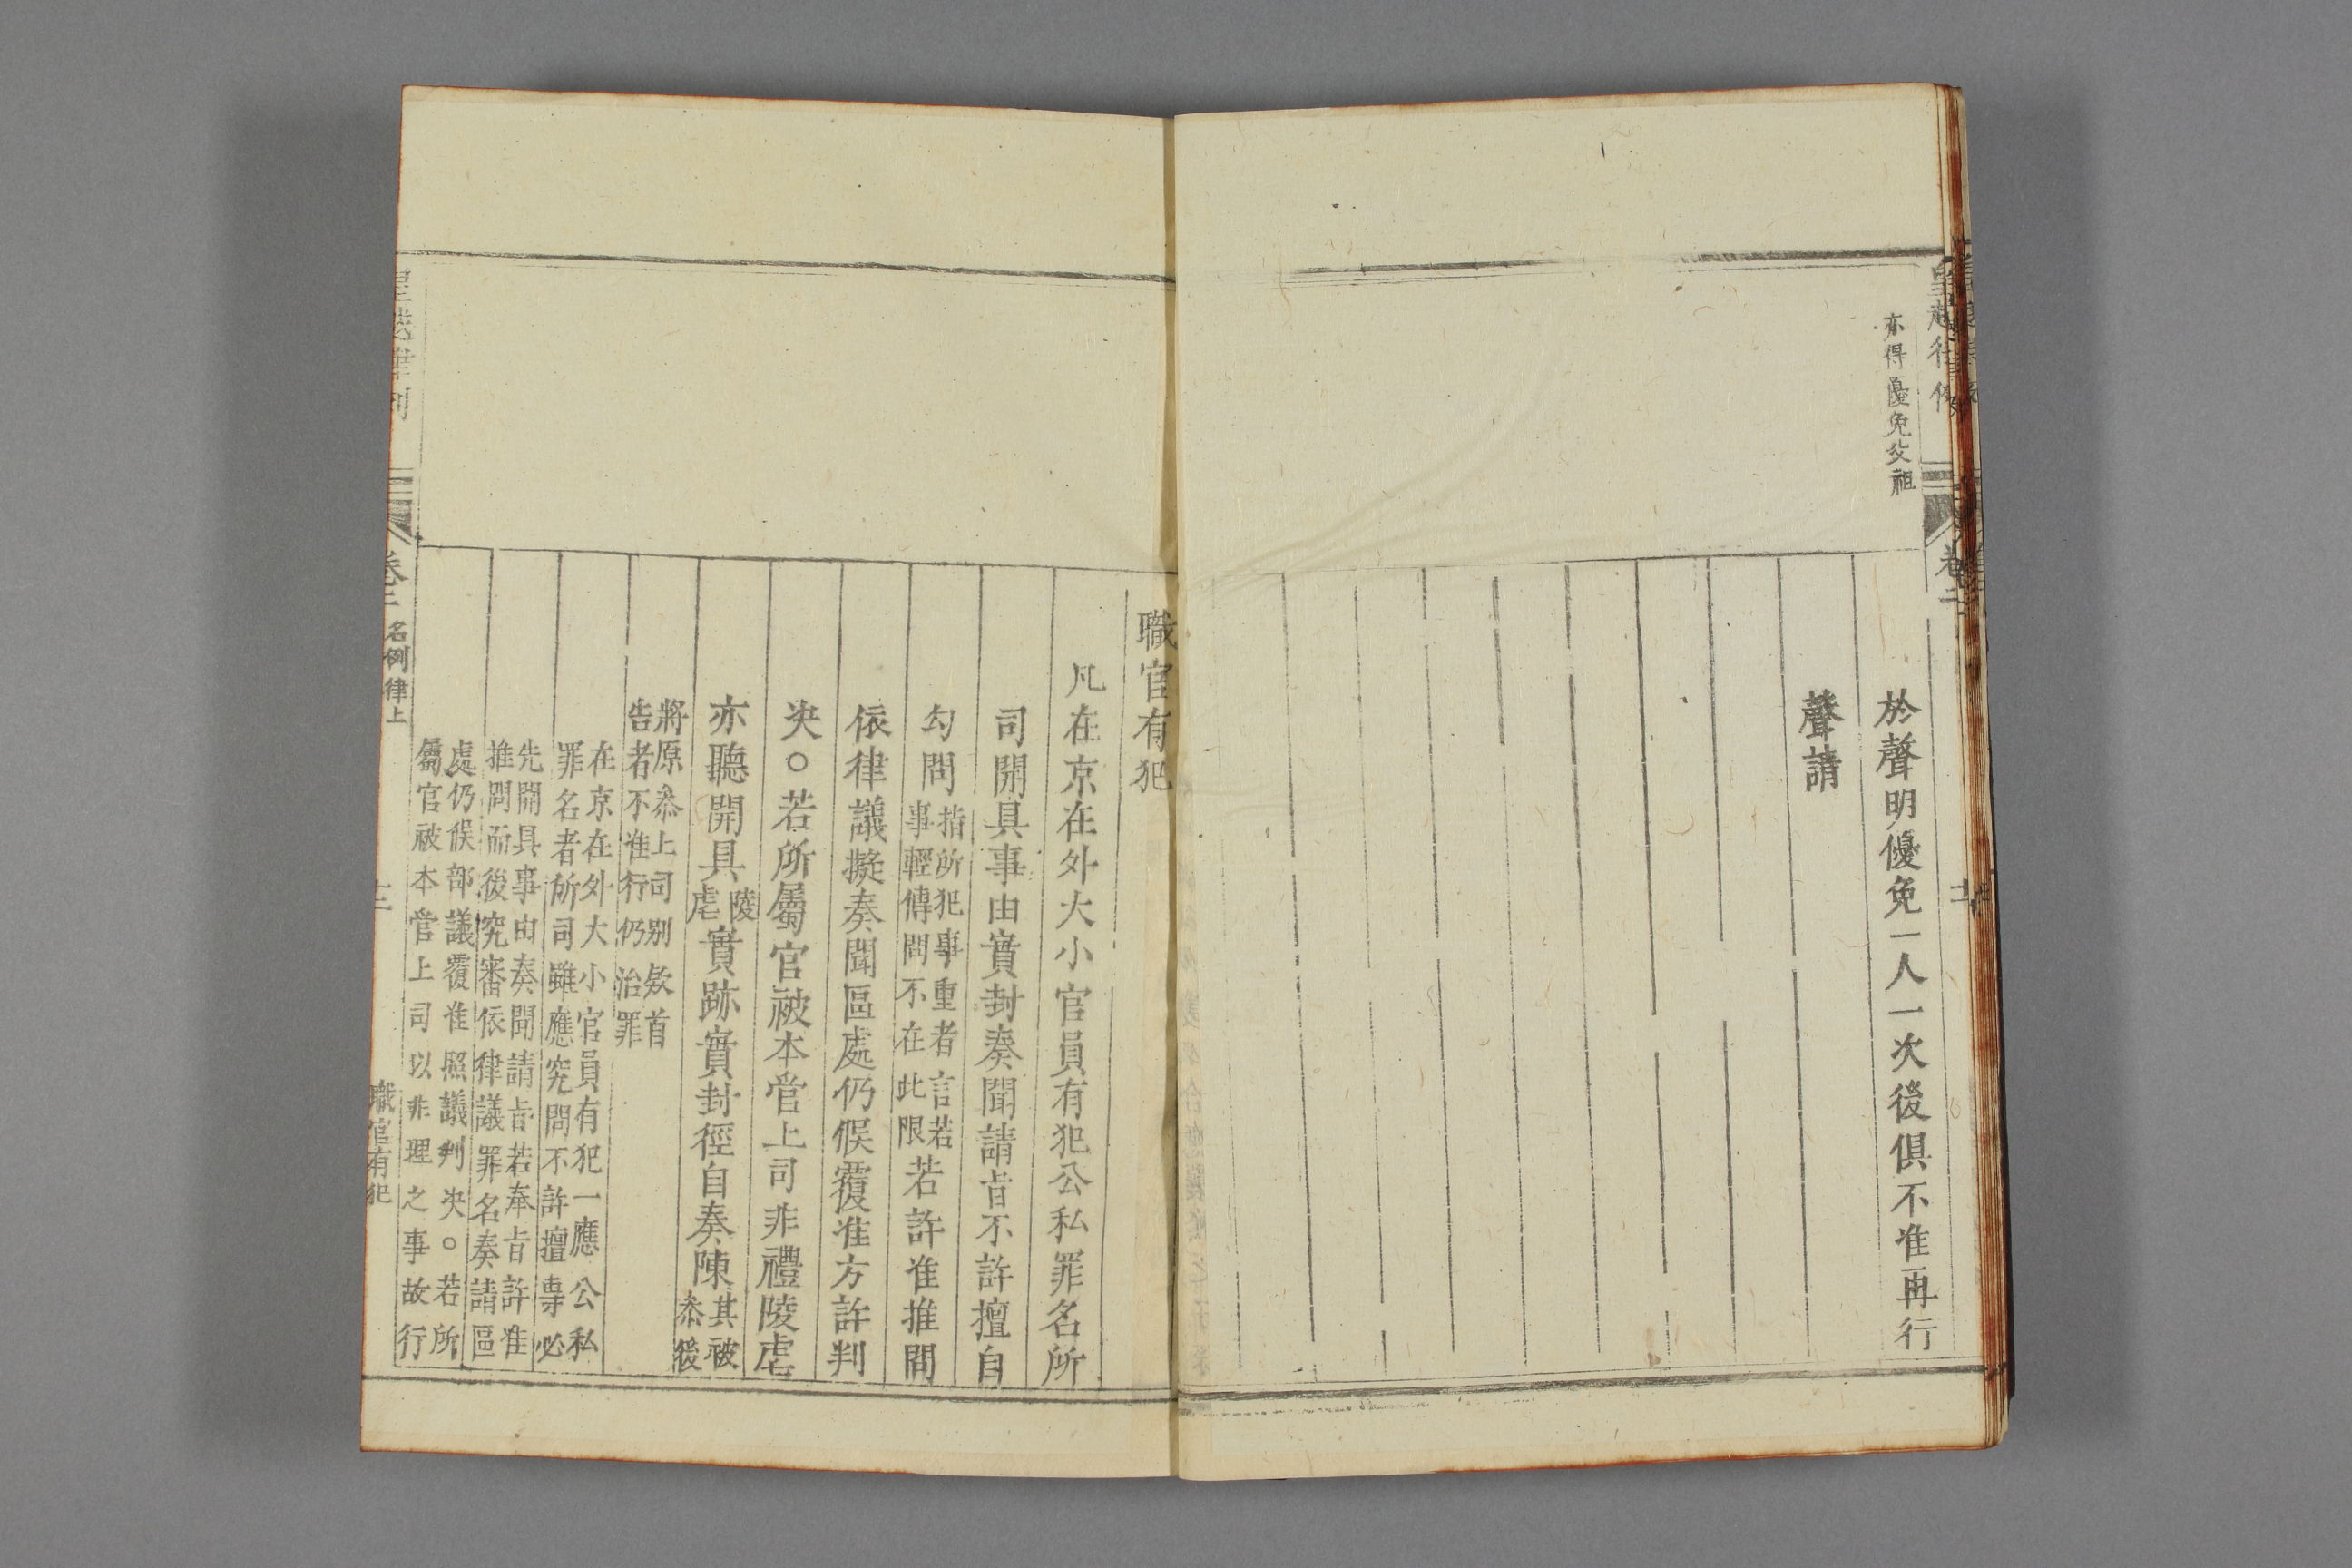 亦得優免父祖
於聲明優免一人一次後俱不准再行
聲請
職官有犯
凡在京在外大小官員有犯公私罪名所
司開具事由實封奏聞請旨不許擅自
勾問指所犯事重者言若事輕傳問不在此限若許准推問
依律議擬奏聞區處仍候覆准方許判
決○若所屬官被本管上司非禮陵虐
亦聽開具陵虐實跡實封徑自奏陳其被叅後
將原叅上司別欵首告者不准行仍治罪
在京在外大小官員有犯一應公私
罪名者所司雖應究問不許擅專必
先開具事由奏聞請旨若奉旨許准
推問而後究審依律議罪名奏請區
處仍候部議覆准照議判決○若所
屬官被本管上司以非理之事故行
卷二
名例律上
職官有犯